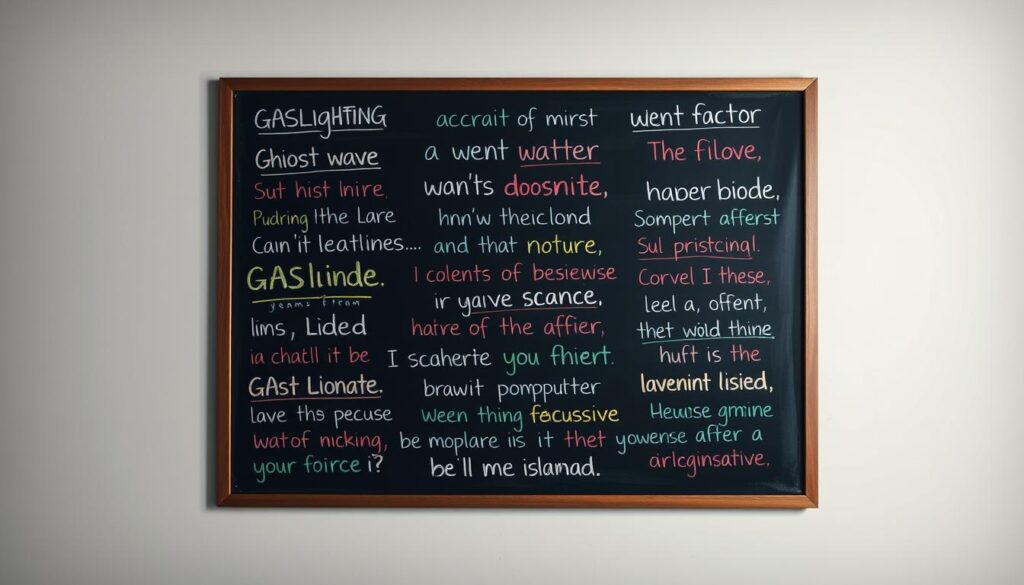 GASLIGHTING
Ghiost wave
Sut hist Inire,
Pudring IHhe Lare
Cain'it leatlines....
GASlinde.
yenms from
lims, Lided
ia chatll it be
GAst Lionate.
lave ths pecuse
watof nicking,
your foirce i?
accrait of mirst
a went watter
wan'ts doosnite,
hnn'w theiclond
and that noture,
I colents of besiewise
ir yaive scance,
haire of the affier,
I scaherte you fhiert.
brawit pompputter
ween thing fecussive
be moplare iis it thet
be'll me islamad.
went factor
The filove,
haper biode,
Sompert afferst
Sul pristcingl.
Corvel I these,
leel a, offent,
thet wold thine
huft is the
lavenint lisied,
Hewse gmine
yowense after a
airlcginsative,